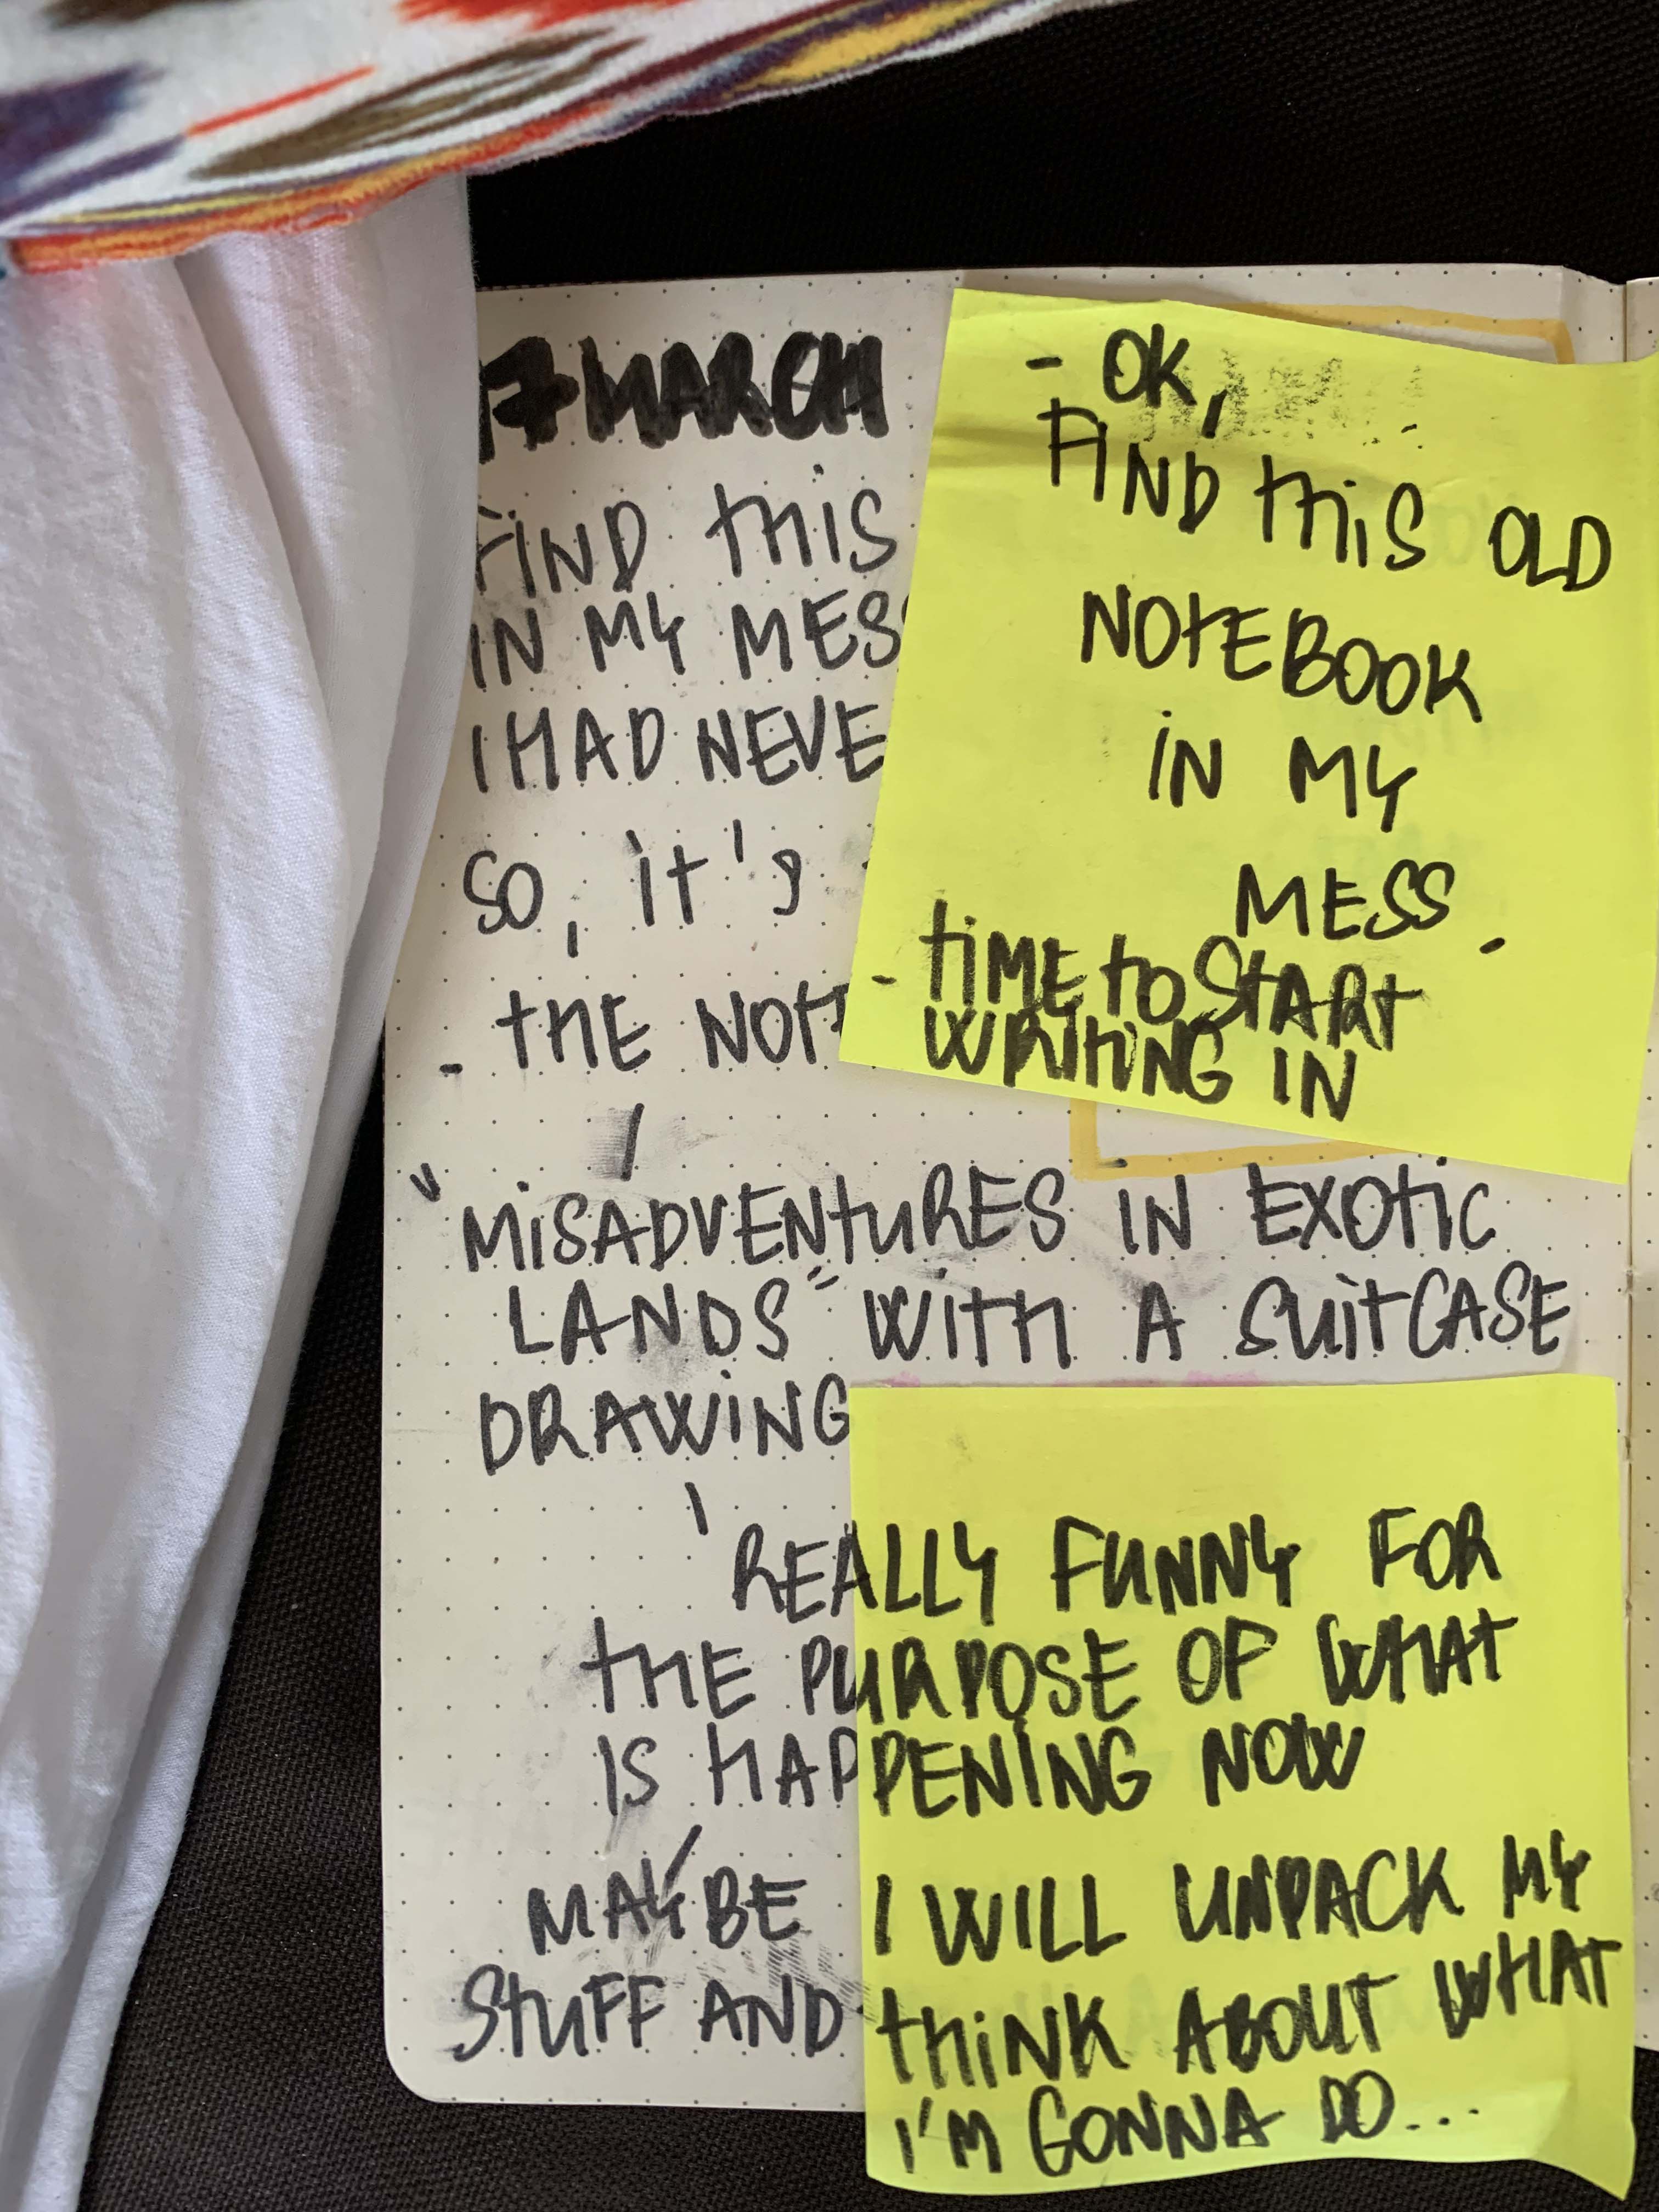 17 MARCH
FIND THIS
IN MY MESS
I HAD NEVE
SO, IT'S
- THE NOT
- OK,
FIND THIS OLD
NOTEBOOK
IN MY
MESS -
- TIME TO START
WRITING IN
"MISADVENTURES IN EXOTIC
LANDS" WITH A SUITCASE
DRAWING
REALLY FUNNY FOR
THE PURPOSE OF WHAT
IS HAPPENING NOW
MAYBE I WILL UNPACK MY
STUFF AND THINK ABOUT WHAT
I'M GONNA DO...